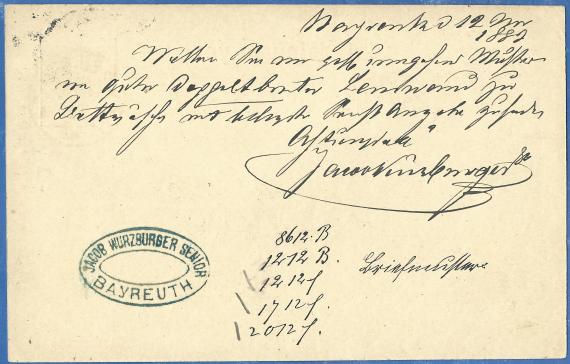 Bayreuth d 12 Nov
1887
Wollen Sie mir gefl umgehend Muster
in guter Doppeltbreiter Leinwand zu
Bettwäsche mit billigster Preis Angabe zusenden
Achtungsvoll
Jacob Würzburger Sr
JACOB WÜRZBURGER SENIOR
BAYREUTH
8612. B
1212 B.
1212 f.
1712 f.
2012 f.
Briefmuster